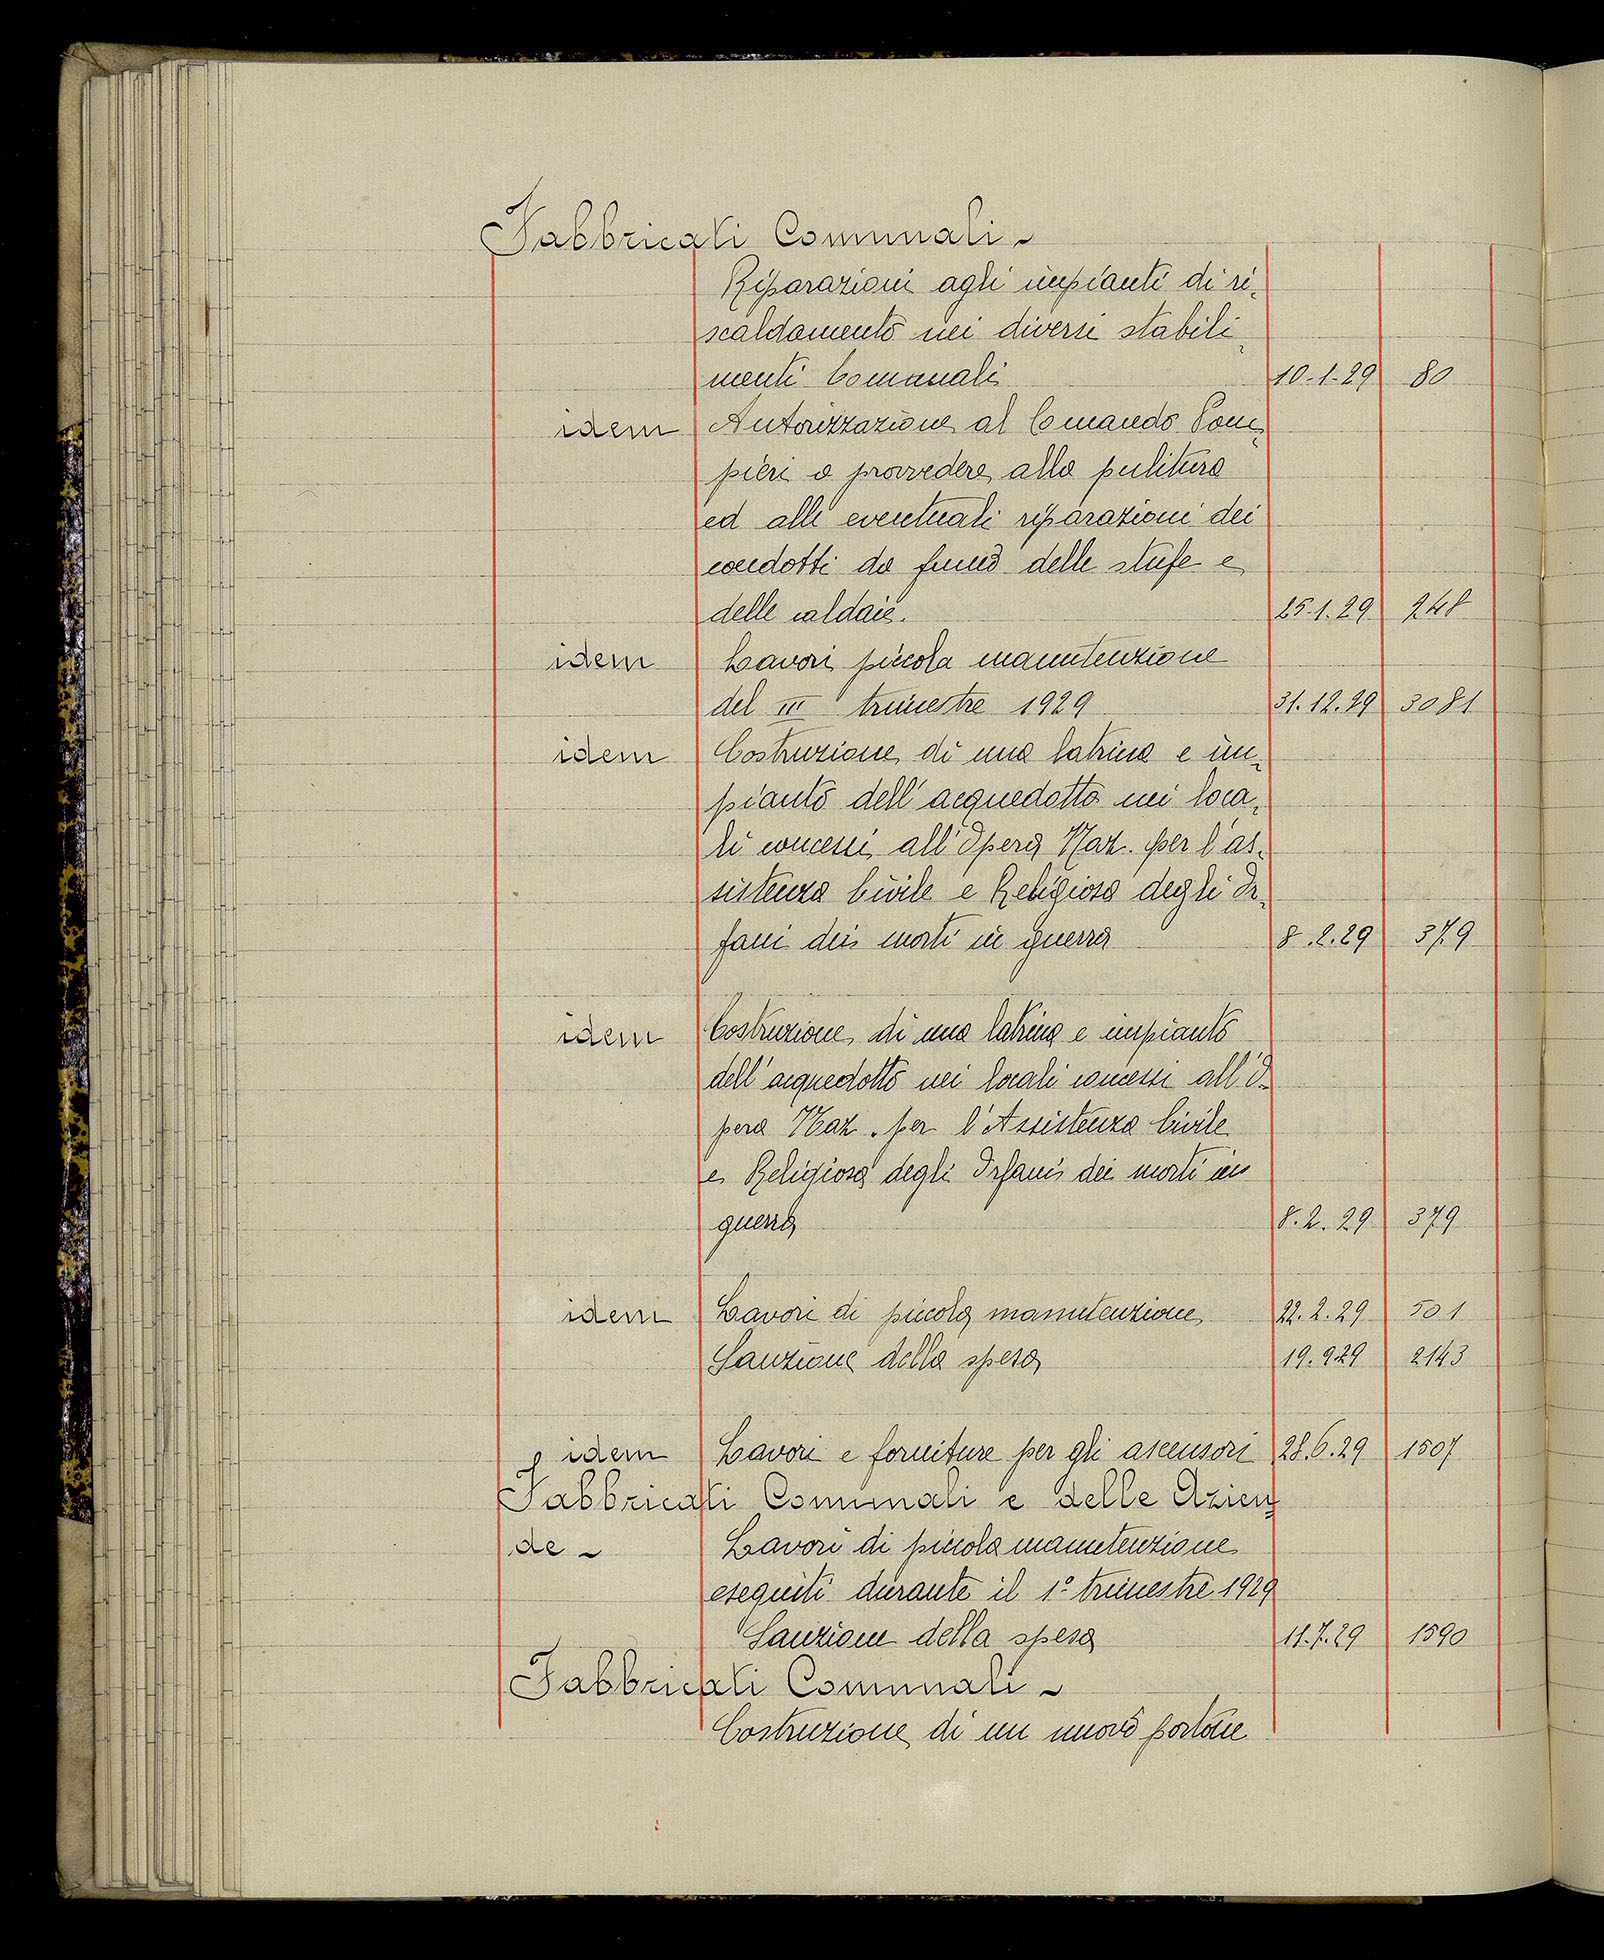 Fabbricati Comunali -
Riparazioni agli impianti di ri-
scaldamento nei diversi stabili-
menti Comunali 10-1-29 80
idem Autorizzazione al Comando Pom-
pieri a provvedere alla pulitura
ed alle eventuali riparazioni dei
condotti da fumo delle stufe e
delle caldaie. 25.1.29 248
idem Lavori piccola manutenzione
del III trimestre 1929 31.12.29 3081
idem Costruzione di una latrina e im-
pianto dell'acquedotto nei loca-
li concessi all'Opera Naz. per l'as-
sistenza Civile e Religiosa degli Or-
fani dei morti in guerra 8.2.29 379
idem Costruzione di una latrina e impianto
dell'acquedotto nei locali concessi all'O-
pera Naz. per l'Assistenza Civile
e Religiosa degli Orfani dei morti in
guerra 8.2.29 379
idem Lavori di piccola manutenzione 22.2.29 501
Sanzione della spesa 19.9.29 2143
idem Lavori e forniture per gli ascensori 28.6.29 1507
Fabbricati Comunali e delle Azien-
de - Lavori di piccola manutenzione
eseguiti durante il 1° trimestre 1929
Sanzione della spesa 11.7.29 1590
Fabbricati Comunali -
Costruzione di un nuovo portone